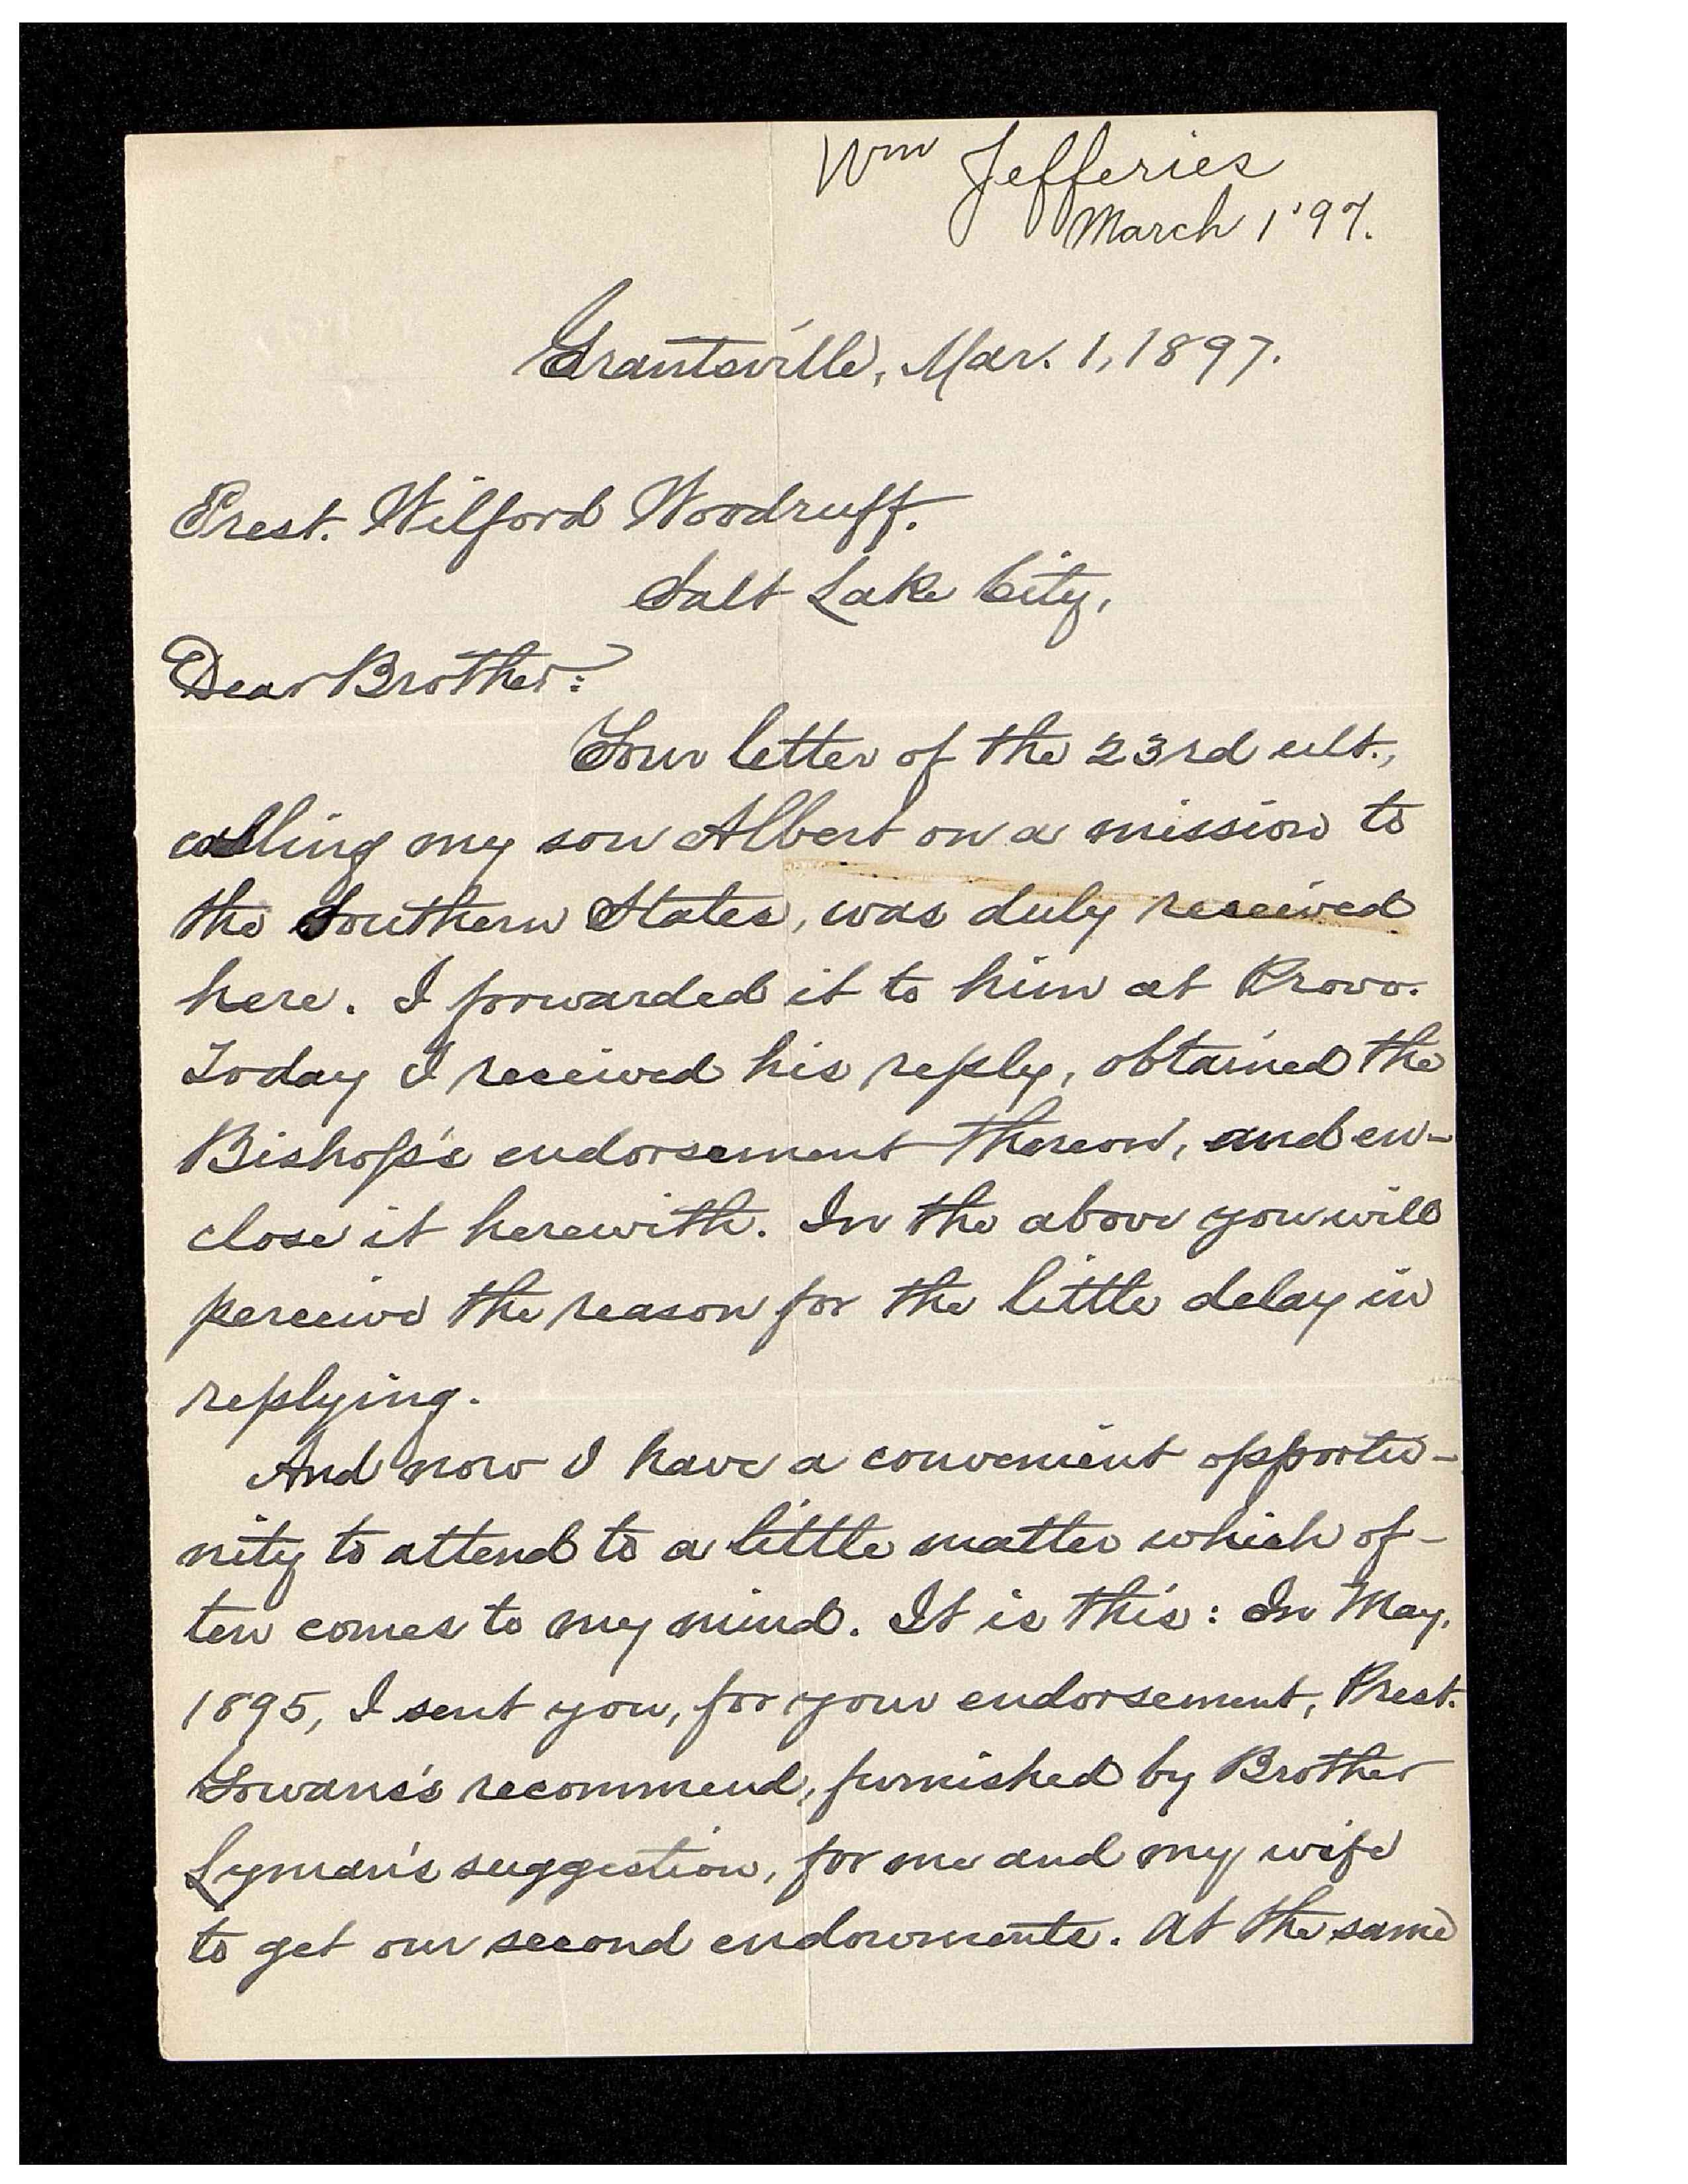 Wm Jefferies
March 1 '97.
Grantsville, Mar. 1, 1897.
Prest. Wilford Woodruff.
Salt Lake City,
Dear Brother:
Your letter of the 23rd ult.,
calling my son Albert on a mission to
the Southern States, was duly received
here. I forwarded it to him at Provo.
Today I received his reply, obtained the
Bishop's endorsement thereon, and en-
close it herewith. In the above you will
perceive the reason for the little delay in
replying.
And now I have a convenient opportu-
nity to attend to a little matter which of-
ten comes to my mind. It is this: In May,
1895, I sent you, for your endorsement, Prest.
Gowans's recommend, furnished by Brother
Lyman's suggestion, for me and my wife
to get our second endowments. At the same